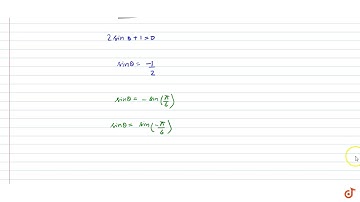 2 sin θ + 1 = 0
sin θ = -1/2
sin θ = - sin (π/6)
sin θ = sin (-π/6)